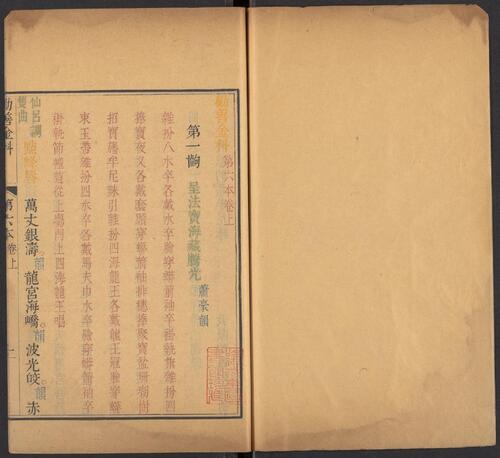 勸善金科 第六本卷上
第一齣 呈法寶海藏騰光 蕭豪韻
雜扮八水卒各戴卒臉穿蟒箭袖卒褂執旗雜扮四
捧寶夜叉各戴套頭穿蟒箭袖排穗捧聚寶盆珊瑚樹
招寶幢牟尼珠引雜扮四海龍王各戴龍王冠臉穿蟒
東玉帶雜扮四水卒各戴馬夫巾水卒臉穿蟒箭袖卒
褂執節幢蓋從上場門上四海龍王唱
仙呂調
雙曲
點絳唇 萬丈銀濤韻 龍宮海嶠韻 波光皎韻 赤
勸善金科 第六本卷上 一